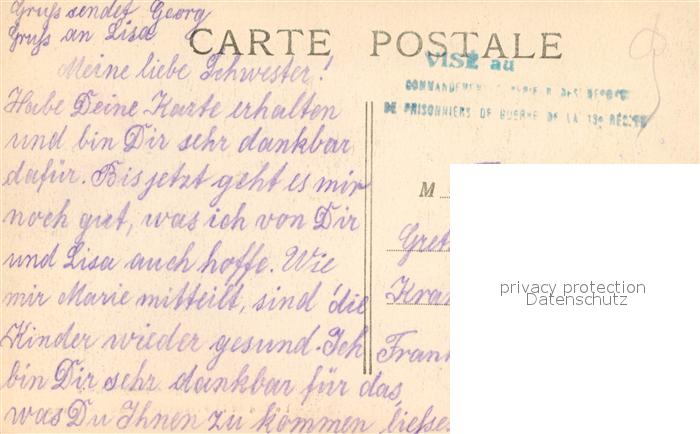 Gruß sendet Georg
Gruß an Lisa
CARTE POSTALE
Meine liebe Schwester!
Habe Deine Karte erhalten
und bin Dir sehr dankbar
dafür. Bis jetzt geht es mir
noch gut, was ich von Dir
und Lisa auch hoffe. Wie
mir Marie mitteilt, sind die
Kinder wieder gesund. Ich
bin Dir sehr dankbar für das,
was Du Ihnen zu kommen ließest
VISÉ au
COMMANDEMENT DES
DE PRISONNIERS DE GUERRE DE LA 13e RÉGION
M
Gret
Kran
Frank
privacy protection
Datenschutz